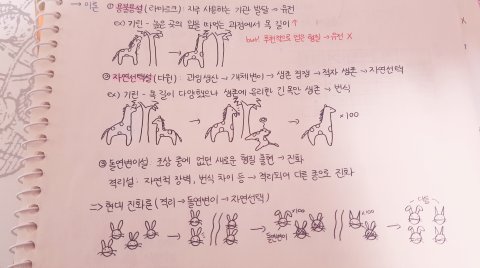 → 이론 ① 용불용설 (라마르크) : 자주 사용하는 기관 발달 → 유전
ex) 기린 - 높은 곳의 잎을 따먹는 과정에서 목 길이↑
but! 후천적으로 얻은 형질 → 유전 X
② 자연선택설 (다윈) : 과잉생산 → 개체변이 → 생존 경쟁 → 적자 생존 → 자연선택
ex) 기린 - 목 길이 다양했으나 생존에 유리한 긴 목만 생존 → 번식
×100
③ 돌연변이설 : 조상 중에 없던 새로운 형질 출현 → 진화
격리설 : 자연적 장벽, 번식 차이 등 → 격리되어 다른 종으로 진화
⇒ 현대 진화론 (격리 → 돌연변이 → 자연선택)
다름
×100
×100
돌연변이